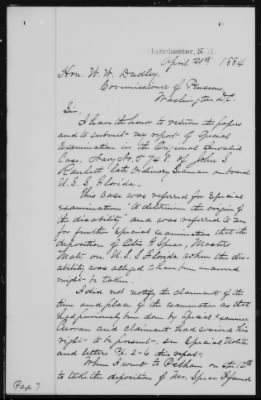 Manchester, N.H.
April 21st, 1884
Hon. W. W. Dudley.
Commissioner of Pensions
Washington D.C.
Sir,
I have the honor to return the papers
and to submit my report of Special
Examination in the Original Invalid
Case, Navy No. of John S
late Ordinary Seaman on board
U.S.S. Florida.
This case was referred for Special
examination "to determine the origin of
the disability" and was referred to me
for further Special examination that the
deposition of F. Spear, Masters
Mate on U.S.S. Florida when the dis-
ability was alleged to have been incurred
might be taken.
I did not notify the claimant of the
time and place of the examination as that
had previously been done by Special Examiner
Curran and claimant had waived his
right to be present, see Special Notice
and letters P. 2-6 this report.
When I went to Pelham on the 12th
to take the deposition of Mr. Spear I found
Page 7